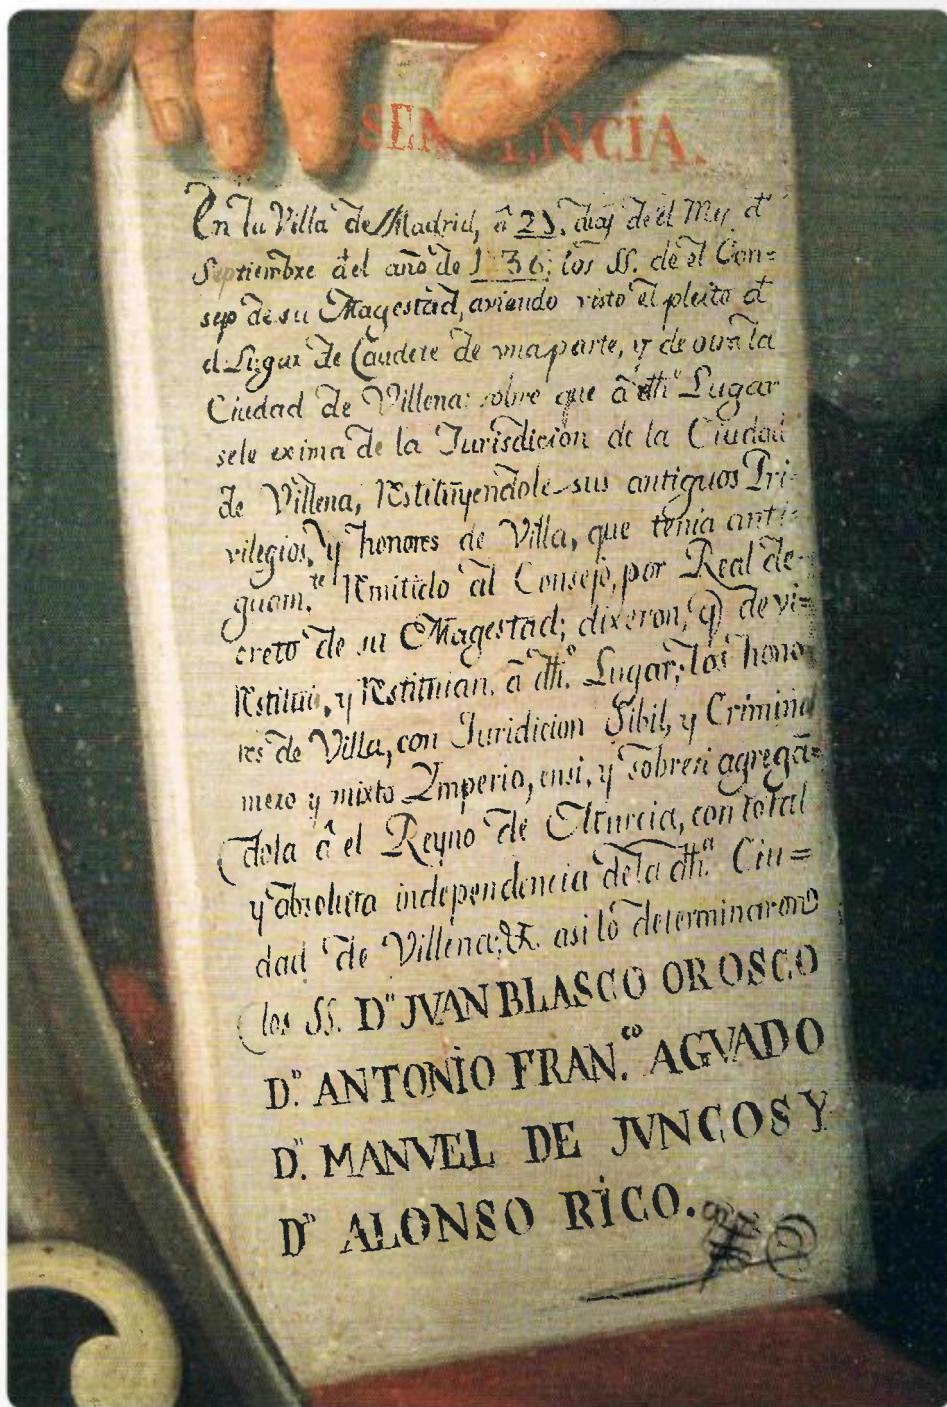 SENTENCIA.
En la Villa de Madrid, â 2 . dias de el Mes d
Septiembre del año de 1 36; los SS. de el Con=
sejo de su Magestad, aviendo visto el pleito d
el Lugar de Caudete de una parte, y de otra la
Ciudad de Villena: sobre que â dhº Lugar
sele exima de la Jurisdición de la Ciudad
de Villena, Restituÿendole sus antiguos Pri-
vilegios, y honores de Villa, que tenia anti=
guam.te Remitido al Consejo, por Real de-
creto de su Magestad; dixeron, q devi=
Restituir, y Restituian. â dhº. Lugar; los hono
res de Villa, con Juridicion Sibil, y Criminal
mero y mixto Ymperio, ensi, y sobresi agregã=
dola â el Reyno de Murcia, con total
y absoluta independencia dela dhª. Ciu=
dad de Villena; &. asi lo determinaron
los SS. Dn JVAN BLASCO OROSCO
Dn. ANTONIO FRAN.co AGVADO
Dn. MANVEL DE JVNCOS Y
Dn ALONSO RICO.